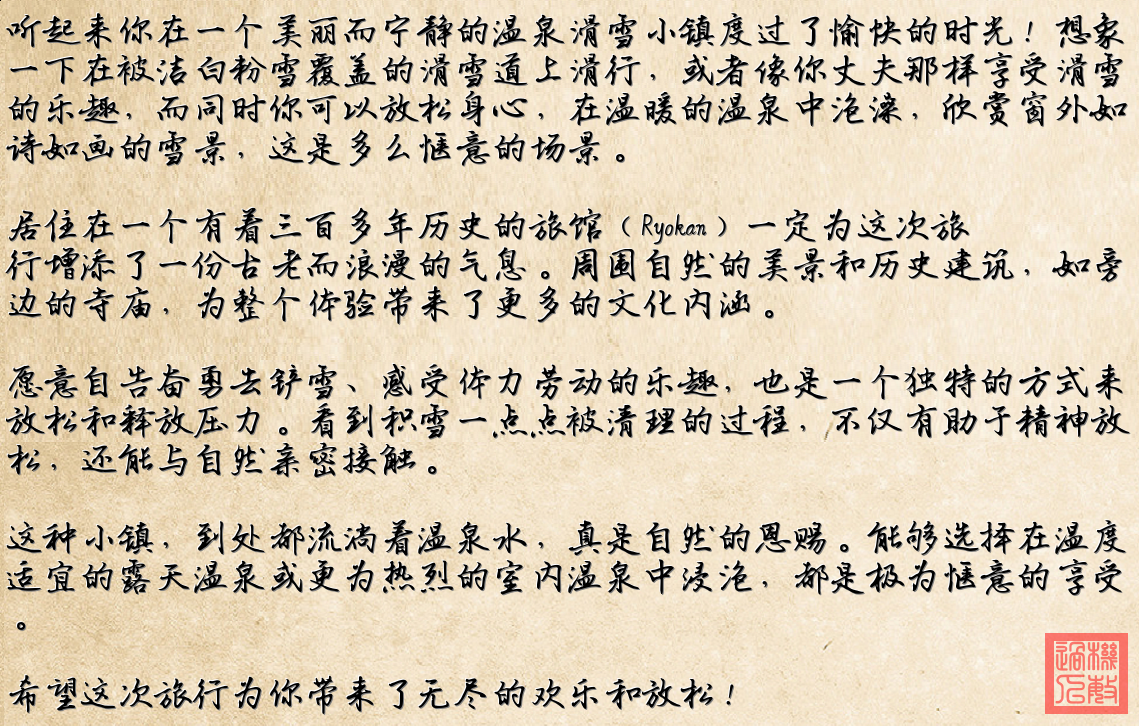 听起来你在一个美丽而宁静的温泉滑雪小镇度过了愉快的时光！想象
一下在被洁白粉雪覆盖的滑雪道上滑行，或者像你丈夫那样享受滑雪
的乐趣，而同时你可以放松身心，在温暖的温泉中泡澡，欣赏窗外如
诗如画的雪景，这是多么惬意的场景。
居住在一个有着三百多年历史的旅馆（Ryokan）一定为这次旅
行增添了一份古老而浪漫的气息。周围自然的美景和历史建筑，如旁
边的寺庙，为整个体验带来了更多的文化内涵。
愿意自告奋勇去铲雪、感受体力劳动的乐趣，也是一个独特的方式来
放松和释放压力。看到积雪一点点被清理的过程，不仅有助于精神放
松，还能与自然亲密接触。
这种小镇，到处都流淌着温泉水，真是自然的恩赐。能够选择在温度
适宜的露天温泉或更为热烈的室内温泉中浸泡，都是极为惬意的享受
。
希望这次旅行为你带来了无尽的欢乐和放松！